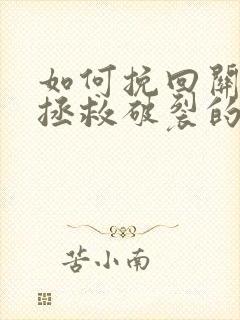 如何挽回關
拯救破裂的
苦小南